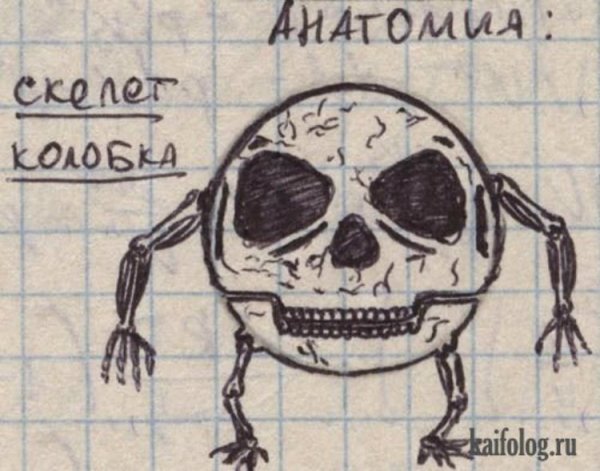 АНАТОМИЯ:
скелет
колобка
kaifolog.ru